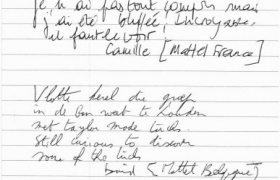 je n'ai pas tout compris mais
j'ai été bluffée, incroyable,
il faut le voir
Camille [Mattel France]
Vlotte kerel die
in de ban wat te
met taylor made tricks.
Still curious to discover
some of the tricks
(Mattel Belgique)